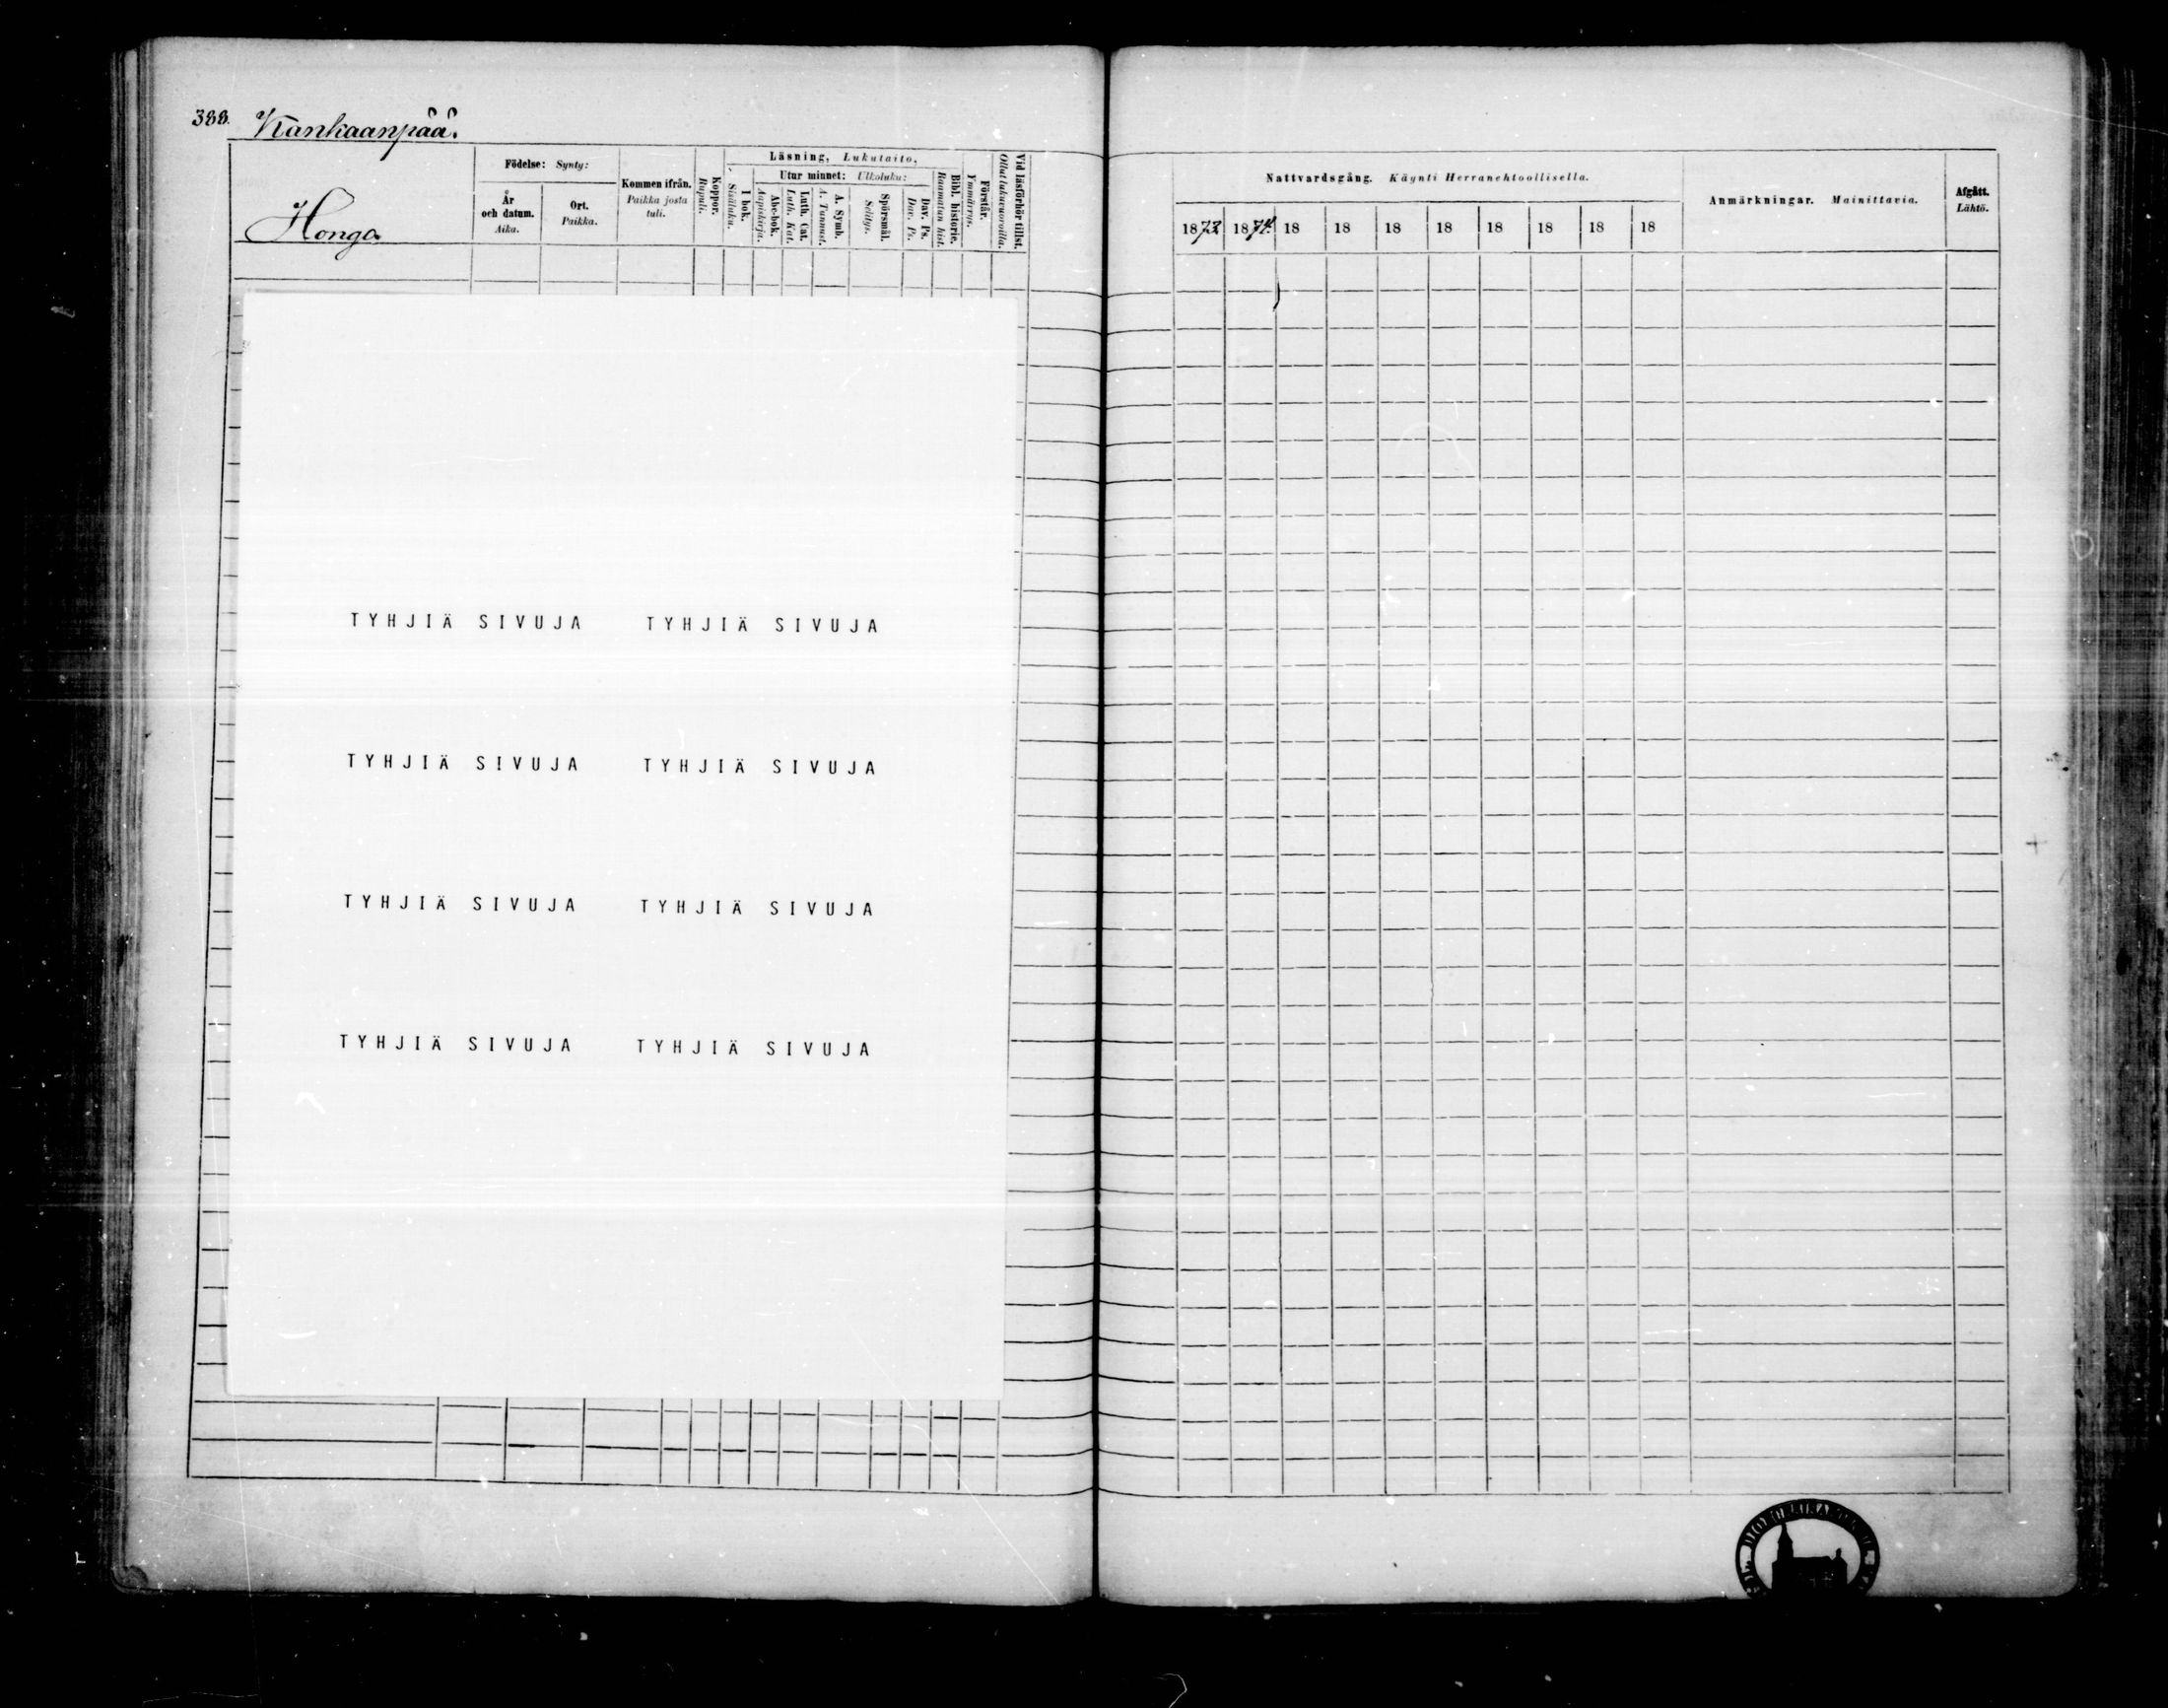 388. Kankaanpää.
Honga
Födelse: Synty:
År och datum. Aika.
Ort. Paikka.
Kommen ifrån. Paikka josta tuli.
Koppor. Rupuli.
Läsning, Lukutaito,
I bok. Sisäluku.
Utur minnet: Ulkoluku:
Abc-bok. Aapiskirja.
Luth. Cat. Luth. Kat.
A. Symb. A. Tunnust.
Spörsmål. Selitys.
Dav. Ps. Dav. Ps.
Bibl. historie. Raamatun hist.
Förstår. Ymmärrys.
Vid läsförhör tillst. Ollut lukuvuoroilla.
Nattvardsgång. Käynti Herranehtoollisella.
1873 1874 18 18 18 18 18 18 18 18
Anmärkningar. Mainittavia.
Afgått. Lähtö.
TYHJIÄ SIVUJA TYHJIÄ SIVUJA
TYHJIÄ SIVUJA TYHJIÄ SIVUJA
TYHJIÄ SIVUJA TYHJIÄ SIVUJA
TYHJIÄ SIVUJA TYHJIÄ SIVUJA